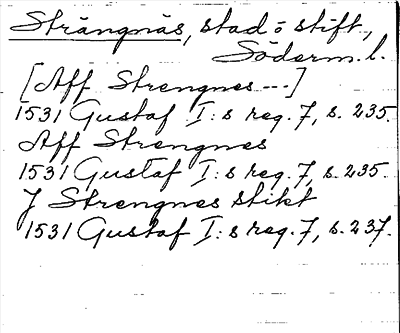 Strängnäs, stad o stift,
Söderm. l.
[Aff Strengnes ---]
1531 Gustaf I:s reg. 7, s. 235.
Aff Strengnes
1531 Gustaf I:s reg. 7, s. 235.
J Strengnes stikt
1531 Gustaf I:s reg. 7, s. 237.